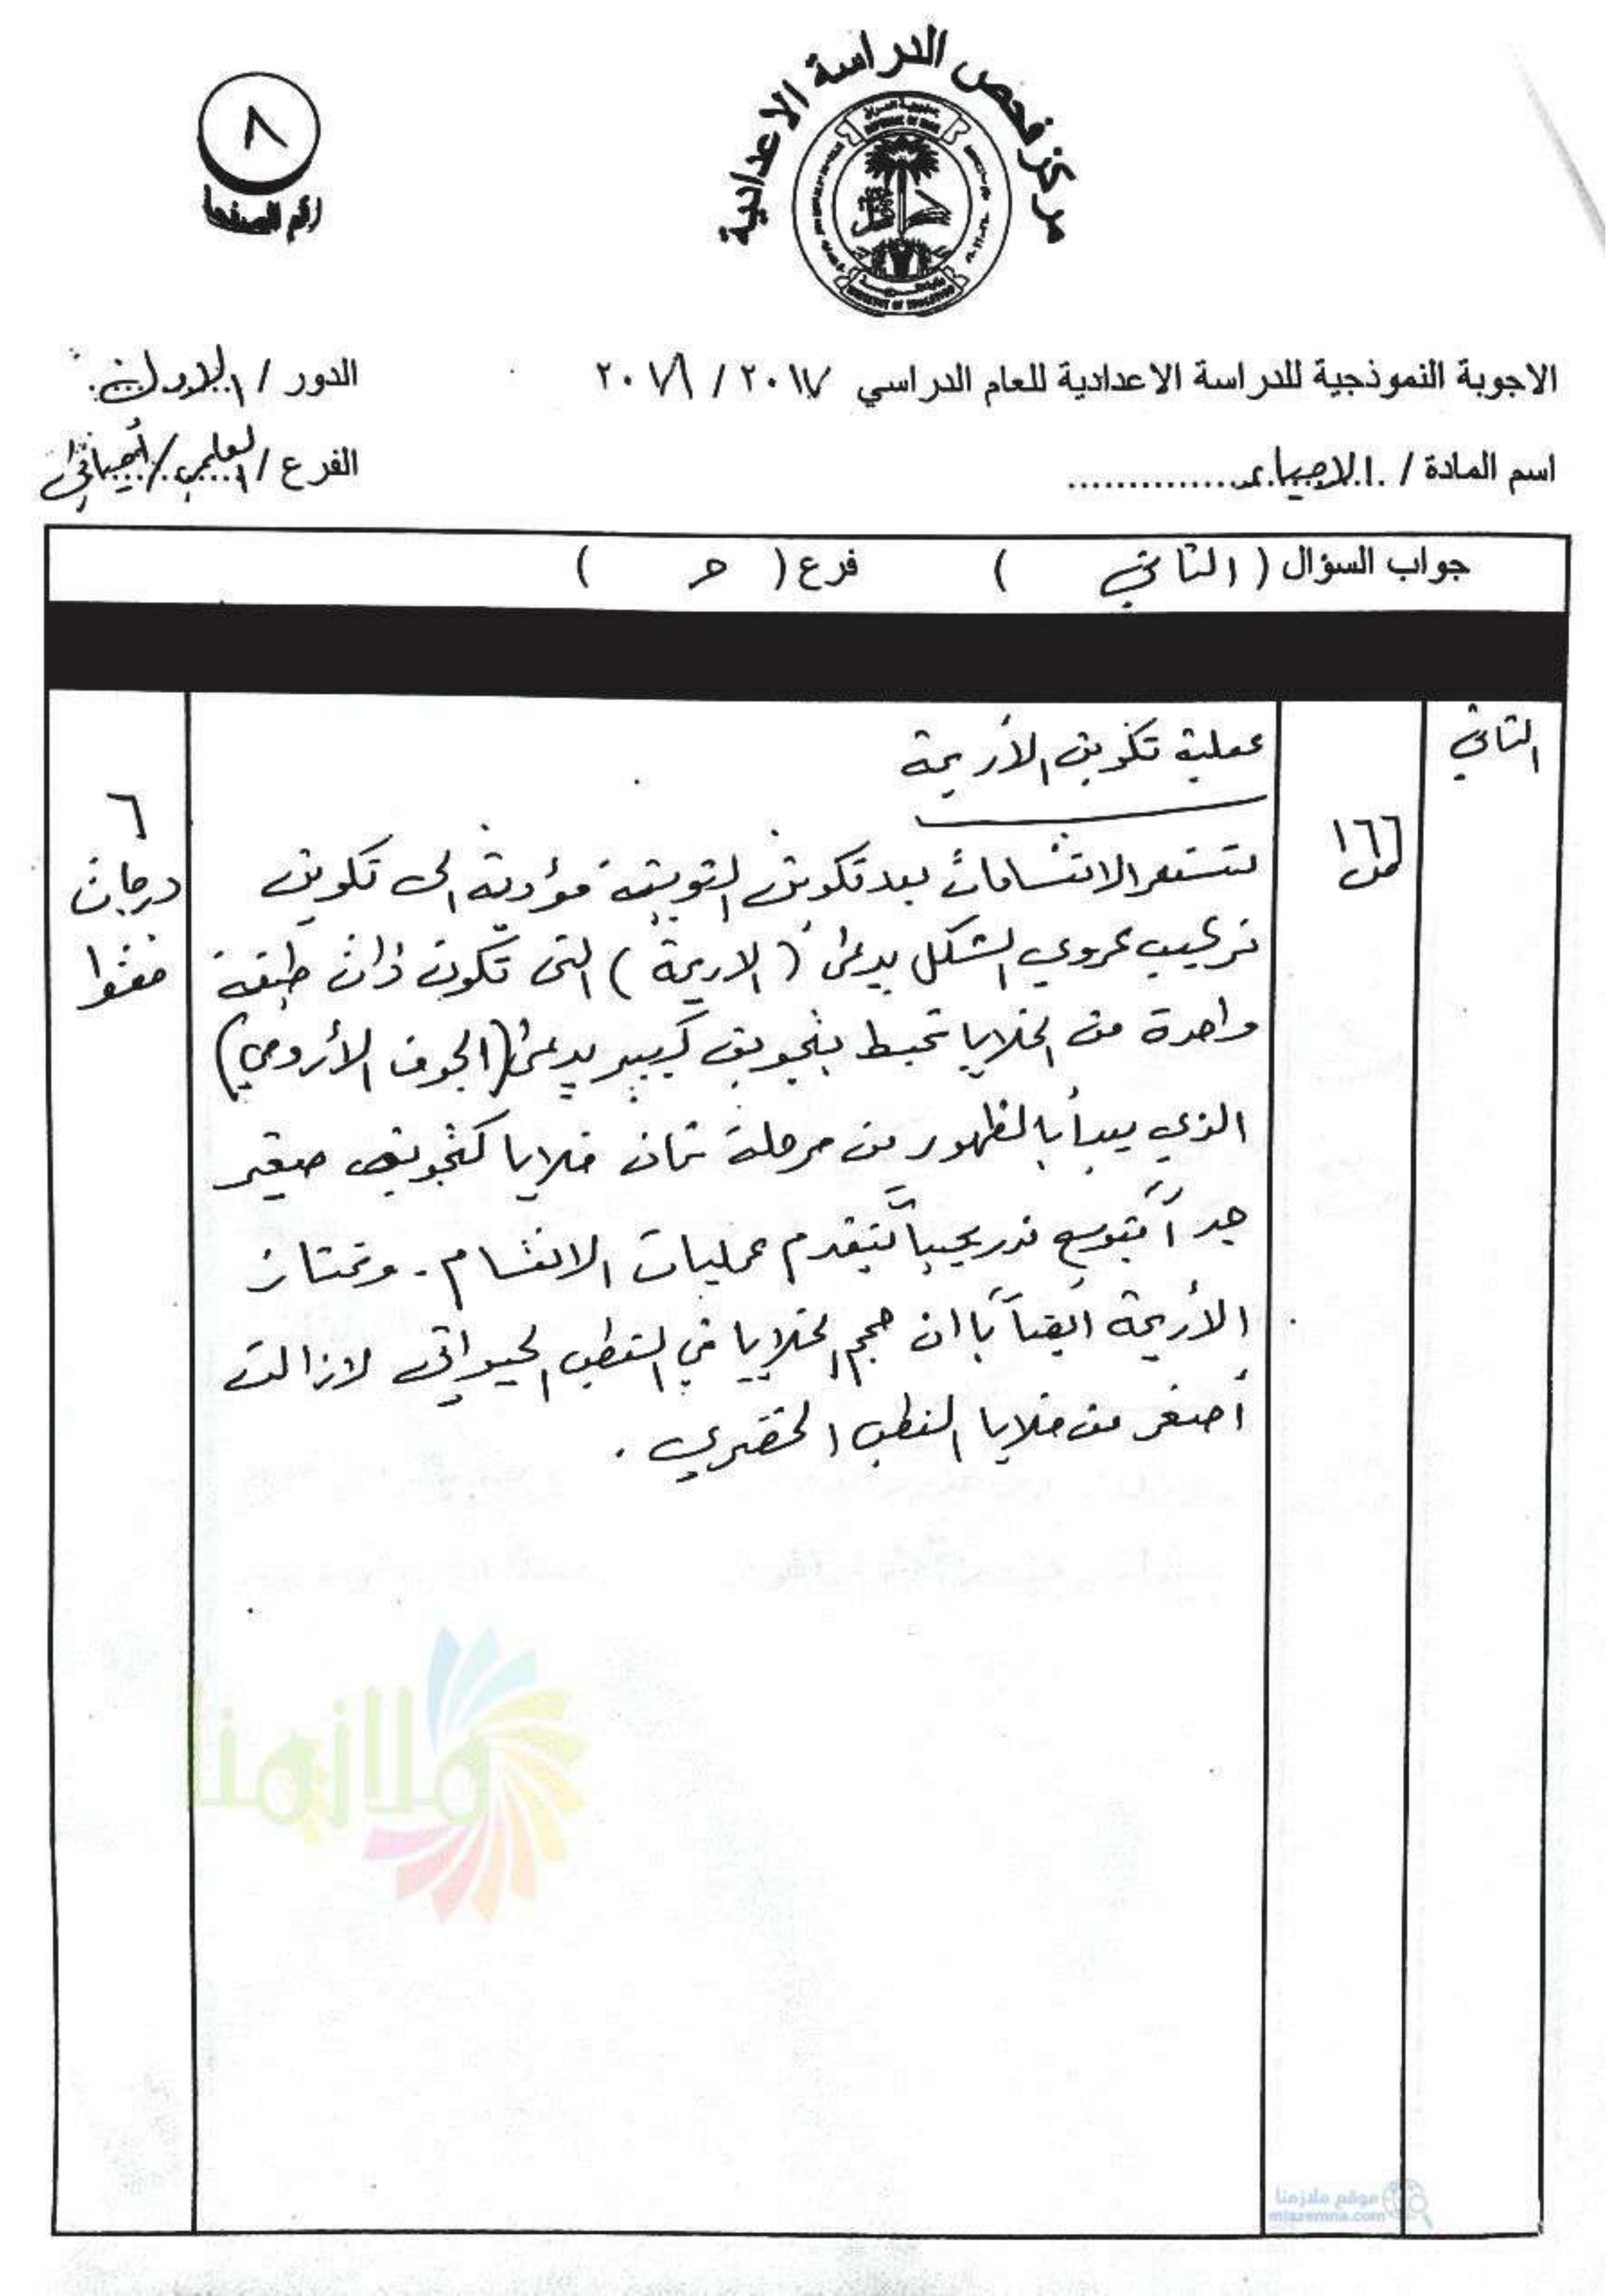 مركز فحص الدراسة الاعدادية
٨
رقم الصفحة
الاجوبة النموذجية للدراسة الاعدادية للعام الدراسي ٢٠١٧ / ٢٠١٨
الدور / الاول
اسم المادة / الاحياء
الفرع / العلمي / الأحيائي
جواب السؤال ( الثاني ) فرع ( حـ )
الثاني
١٦٦
ص
عملية تكوين الأريمة
تستمر الانقسامات بعد تكوين التويتة مؤدية الى تكوين
تركيب كروي الشكل يدعى ( الاريمة ) التي تكون ذات طبقة
واحدة من الخلايا تحيط بتجويف كبير يدعى (الجوف الأرومي)
الذي يبدأ بالظهور من مرحلة ثمان خلايا كتجويف صغير
جداً يتوسع تدريجياً بتقدم عمليات الانقسام . وتمتاز
الأريمة ايضاً بأن حجم الخلايا في القطب الحيواني لازالت
أصغر من خلايا القطب الخضري .
٦
درجات
فقط
ملازمنا
موقع ملازمنا
mlazemna.com